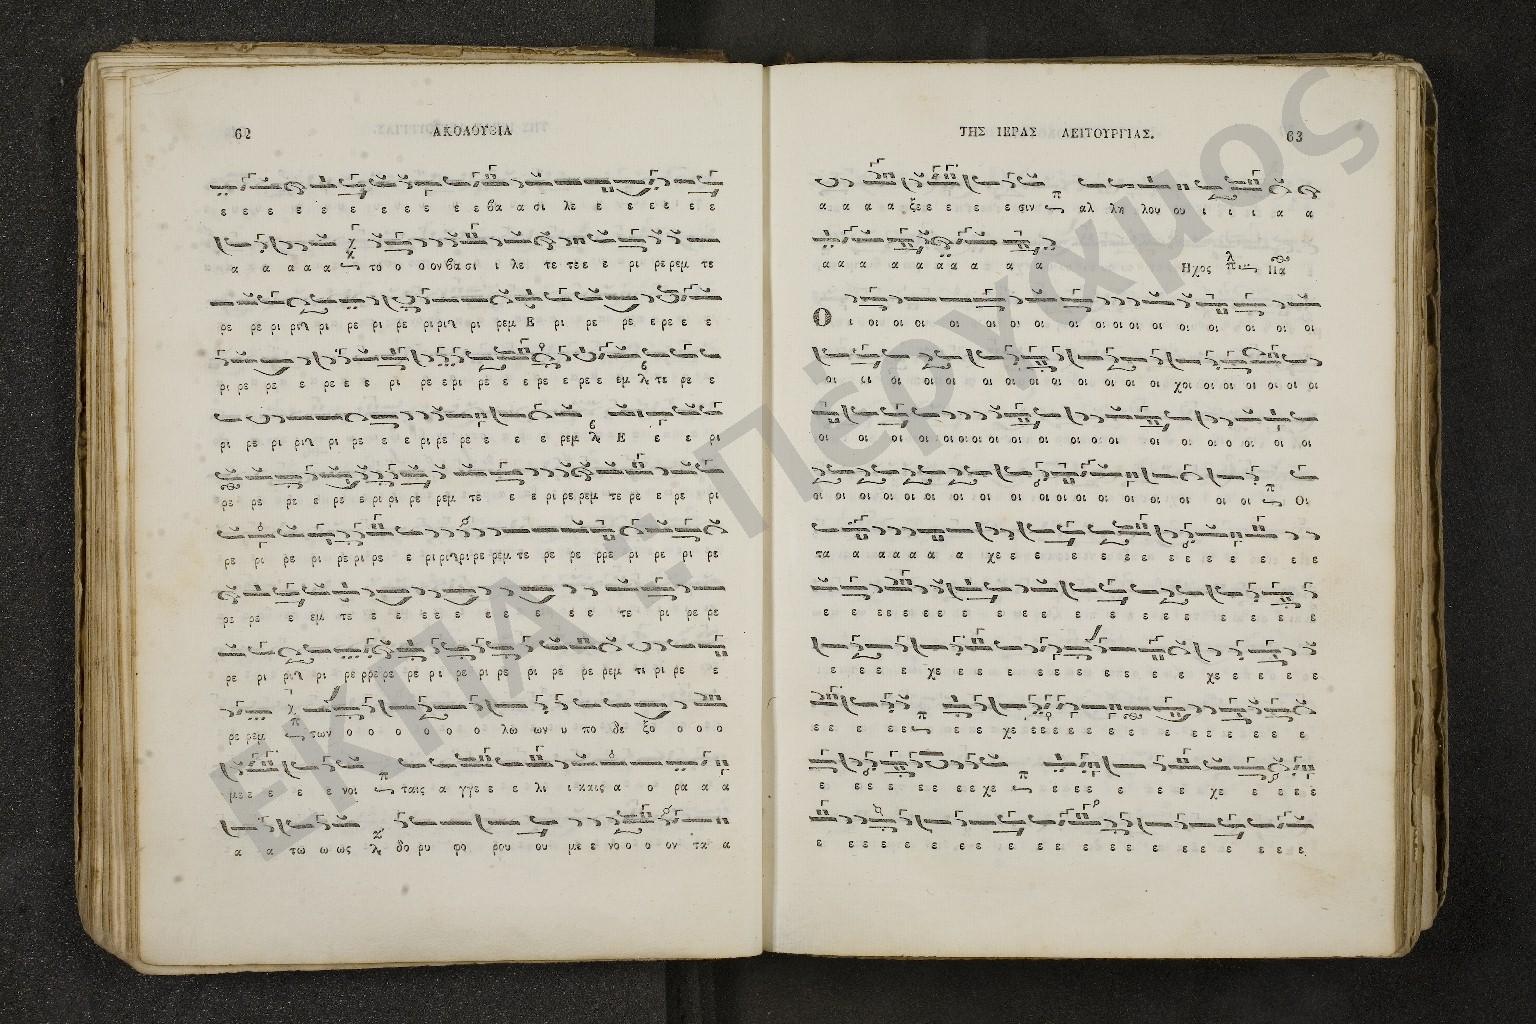 62
ΑΚΟΛΟΥΘΙΑ
ε ε ε ε ε ε ε ε ε ε ε βα α σι λε ε ε ε ε ε
α α α α α το ο ο ον βα σι ι λε τε τε ε ε ρι ρε ρεμ τε
ρε ρε ρι ριλ ρι ρε ρι ρε ρι ριλ ρι ρεμ Ε ρι ρε ρε ε ρε ε ε
ρι ρε ρε ε ρε ε ε ρι ρε ε ρι ρε ε ε ρε ε ρε ε εμ τε ρε ε
ρι ρε ρι ριλ ρι ρε ε ε ρι ρε ρε ε ε ε ε ρεμ Ε ε ε ρι
ρε ρε ρε ε ρε ε ρι ρι ρε ρεμ τε ε ε ρι ρε ρεμ τε ρε ε ρε ρι
ρε ρι ρε ρι ρε ρι ρε ε ρι ριλ ρι ρε ρεμ τε ρε ρε ρρε ρι ρε ρι ρε
ρε ρε ε εμ τε ε ε ε ε ε ε ε ε ε ε τε ρι ρε ρε
ρε ρι ριλ ρι ρε ρρε ρε ρε ρι ρε ρι ρε ρι ρε ρε ρεμ τι ρι ρε ε
ρε ρεμ των ο ο ο ο ο ο λω ων υ πο δε ξο ο ο ο
με ε ε ε ε νοι ταις α γγε ε ε λι ι καις α ο ρα α α
α α τω ω ως δο ρυ φο ρου ου με ε νο ο ο ον τα α
ΤΗΣ ΙΕΡΑΣ ΛΕΙΤΟΥΡΓΙΑΣ.
63
α α α α ξε ε ε ε ε σιν αλ λη λου ου ι ι ι α α
α α α α α α α α α
Ηχος Πα
Ο ι οι οι οι οι οι οι οι οι οι οι οι οι οι οι οι οι
οι οι οι οι οι οι οι οι οι οι οι οι οι χοι οι οι οι οι οι οι
οι οι οι οι οι οι οι οι οι οι οι οι οι οι ο ο οι οι οι
οι οι οι οι οι οι οι οι οι οι οι οι οι οι οι οι οι οι οι Οι
τα α α α α α χε ε ε ε ε ε ε ε ε ε ε ε ε ε ε
ε ε ε ε ε ε ε ε ε ε ε ε ε ε ε ε ε ε ε ε
ε ε ε ε χε ε ε ε ε ε ε ε ε ε ε χε ε ε ε ε
ε ε ε ε ε ε ε ε χε ε ε ε ε ε ε ε ε ε ε ε ε ε
ε ε ε ε ε ε χε ε ε ε ε ε ε ε χε ε ε ε ε
ε ε ε ε ε ε ε ε ε ε ε ε ε ε ε ε ε ε ε ε ε
ΕΚΠΑ :: Πέργαμος